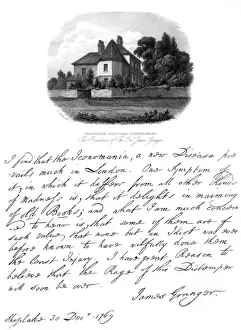 SHIPLAKE VICARAGE, OXFORDSHIRE
The Residence of the Revd. James Granger
I find that the Iconomania, a new Disease pre
vails much in London. One Symptom of
it, in which it differs from all other Kinds
of madness is, that it delights in maiming
old Books; and what I am much concern
ed to hear is, that some of them are of
such value, that none but an Idiot was ever
before known to have wilfully done them
the least Injury. I have great Reason to
believe that the Rage of this Distemper
will soon be over.
James Granger.
Shiplake 30 Decr. 1769